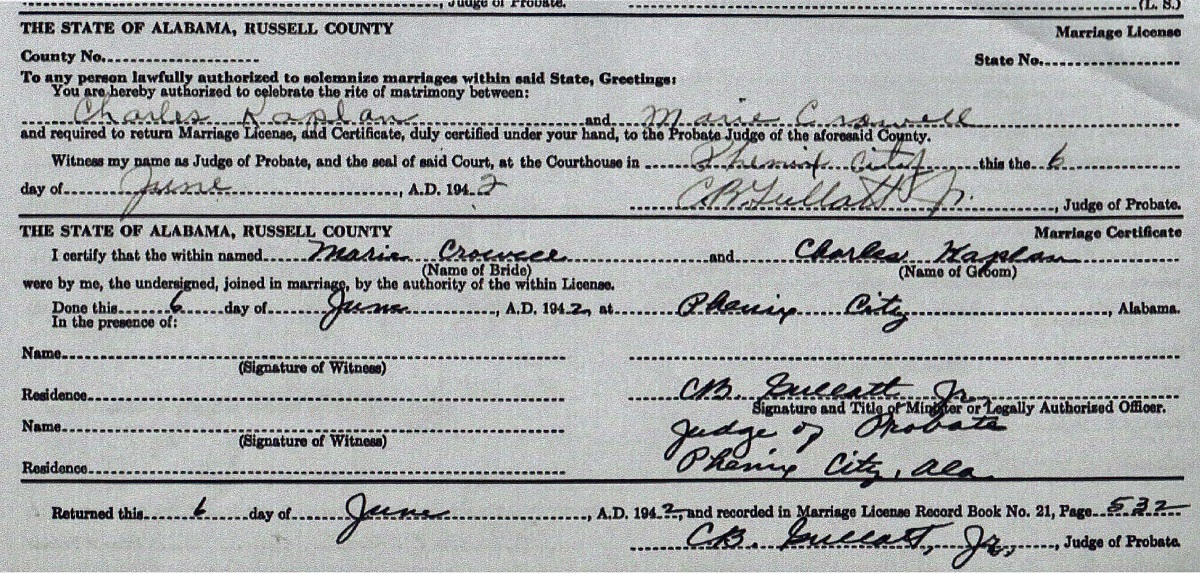 Judge of Probate. (L. S.)
THE STATE OF ALABAMA, RUSSELL COUNTY Marriage License
County No. State No.
To any person lawfully authorized to solemnize marriages within said State, Greetings:
You are hereby authorized to celebrate the rite of matrimony between:
Charles Kaplan and Marie Crowell
and required to return Marriage License, and Certificate, duly certified under your hand, to the Probate Judge of the aforesaid County.
Witness my name as Judge of Probate, and the seal of said Court, at the Courthouse in Phenix City this the 6
day of June, A.D. 1942
C.B. Gullatt Jr., Judge of Probate.
THE STATE OF ALABAMA, RUSSELL COUNTY Marriage Certificate
I certify that the within named Marie Crowell and Charles Kaplan
(Name of Bride) (Name of Groom)
were by me, the undersigned, joined in marriage, by the authority of the within License.
Done this 6 day of June, A.D. 1942, at Phenix City, Alabama.
In the presence of:
Name
(Signature of Witness)
Residence C.B. Gullatt Jr.
Signature and Title of Minister or Legally Authorized Officer.
Name Judge of Probate
(Signature of Witness)
Residence Phenix City, Ala
Returned this 6 day of June, A.D. 1942, and recorded in Marriage License Record Book No. 21, Page 532
C.B. Gullatt, Jr., Judge of Probate.